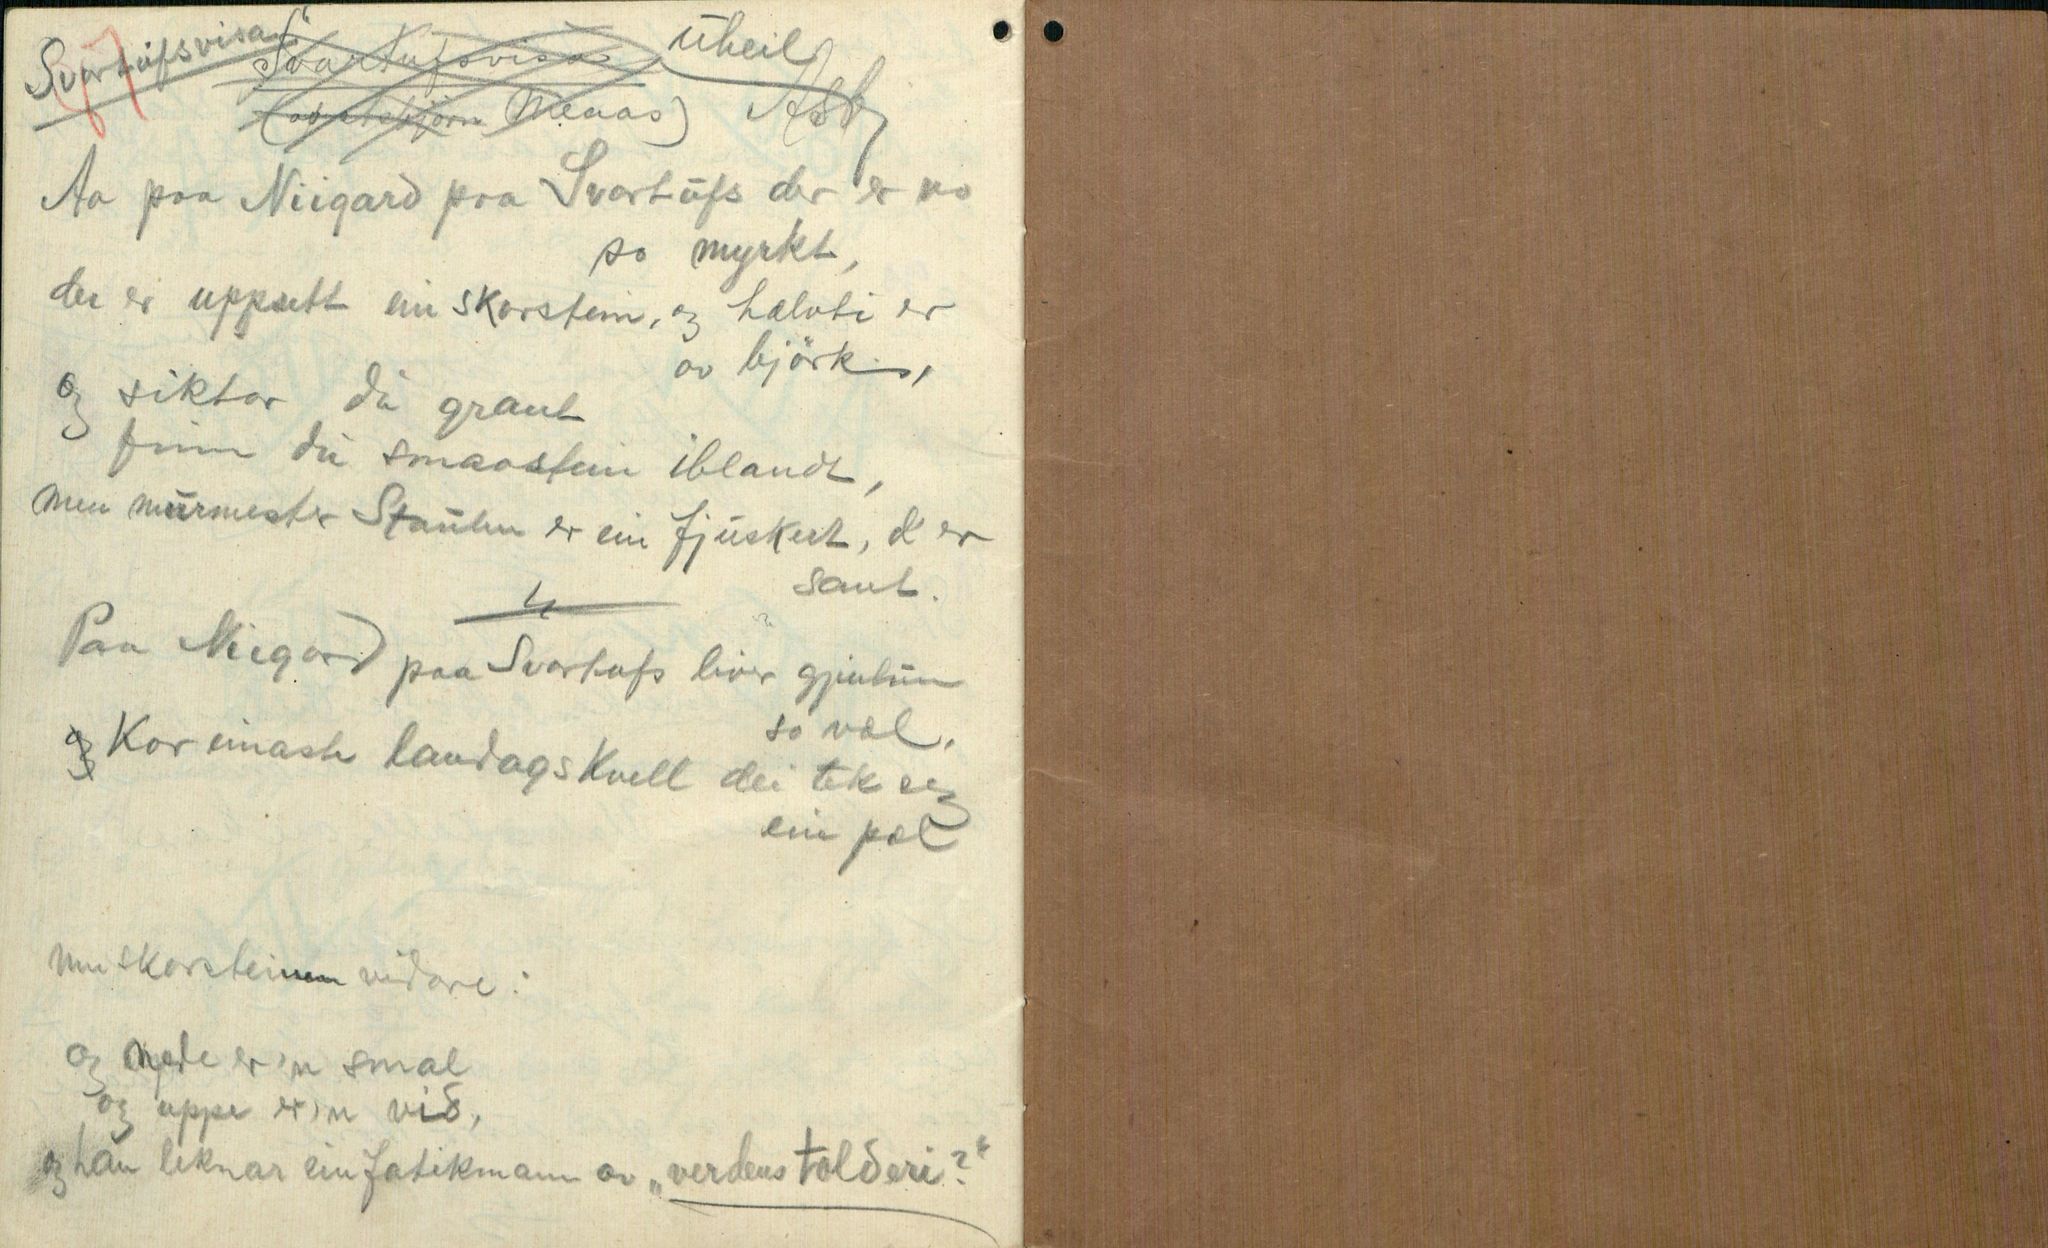 Svartufsvisa"
Svartufsvisa uheil
(av Asbjörn Menaas) Asbj
Aa paa Niigard paa Svartufs der er no
so myrkt,
der er uppsett ein skorstein, og halvti er
av björk,
og siktar du graut
finn du smaastein iblandt,
men murmester Stauten er ein fjuskert, d'er
sant.
Paa Niigard paa Svartufs liver gjentun
so væl,
og Kor einaste laurdagskvell dei tek seg
ein pæl
um skorsteinen vidare:
og nede er'n smal
og uppe er'n vid,
og han liknar ein fatikmann av „verdens tolderi?"